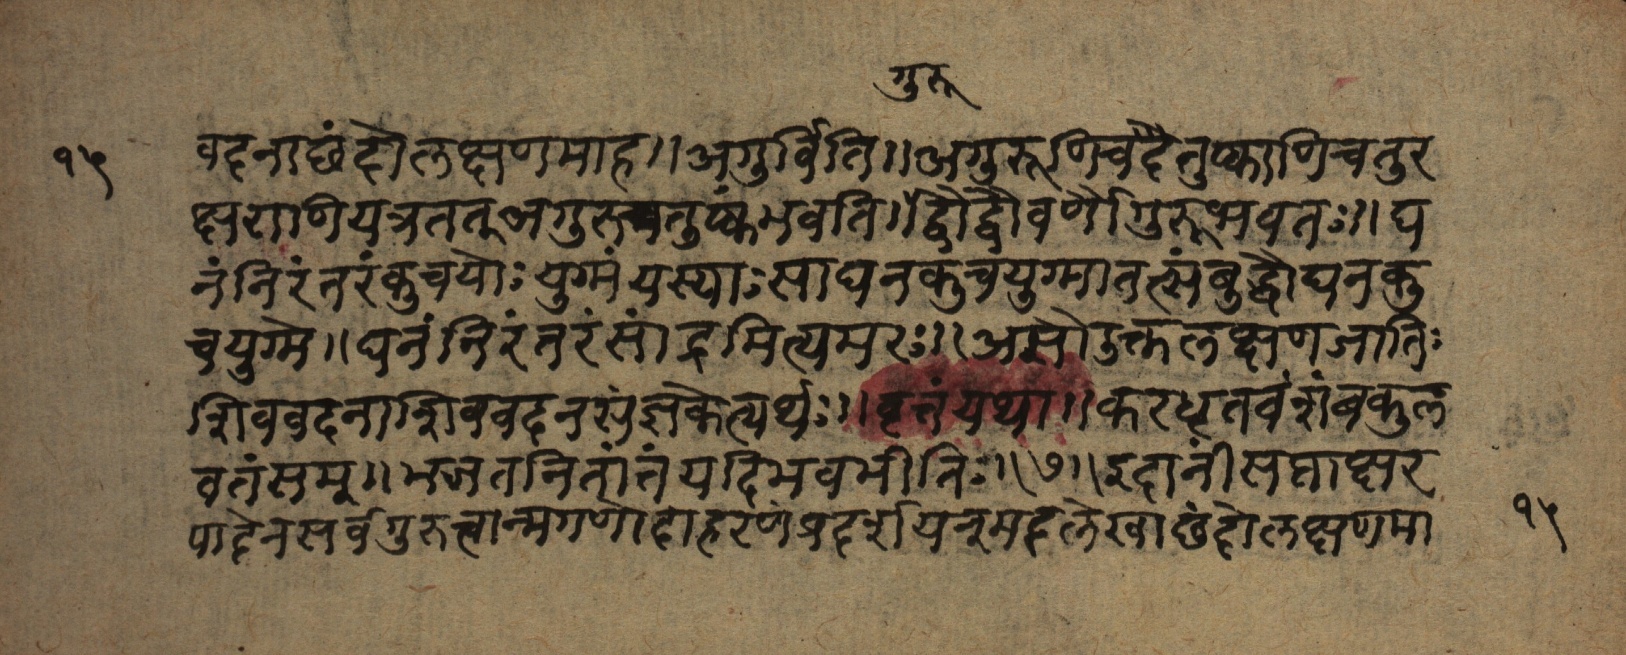 गुरू
१५ वदनाछंदोलक्षणमाह॥अगुर्विति॥अगुरूणिचेदैतुष्काणिचतुर
क्षराणियत्रतत्अगुरुचतुष्कंभवति॥द्वौद्वौवर्णौगुरूभवतः॥घ
नंनिरंतरंकुचयोःयुग्मंयस्याःसाघनकुचयुग्मातत्संबुद्धौघनकु
चयुग्मे॥घनंनिरंतरंसांद्रमित्यमरः॥असोउक्तलक्षणजातिः
शिववदनाशिववदनसंज्ञकेत्यर्थः॥वृत्तंयथा॥करधृतवंशंबकुल
वतंसम्॥भजतनितांतंयदिभवभीतिः॥७॥इदानींसप्ताक्षर
पादेनसर्वगुरुत्वान्मगणोदाहरणंप्रदर्शयन्मदलेखाछंदोलक्षणमा १५